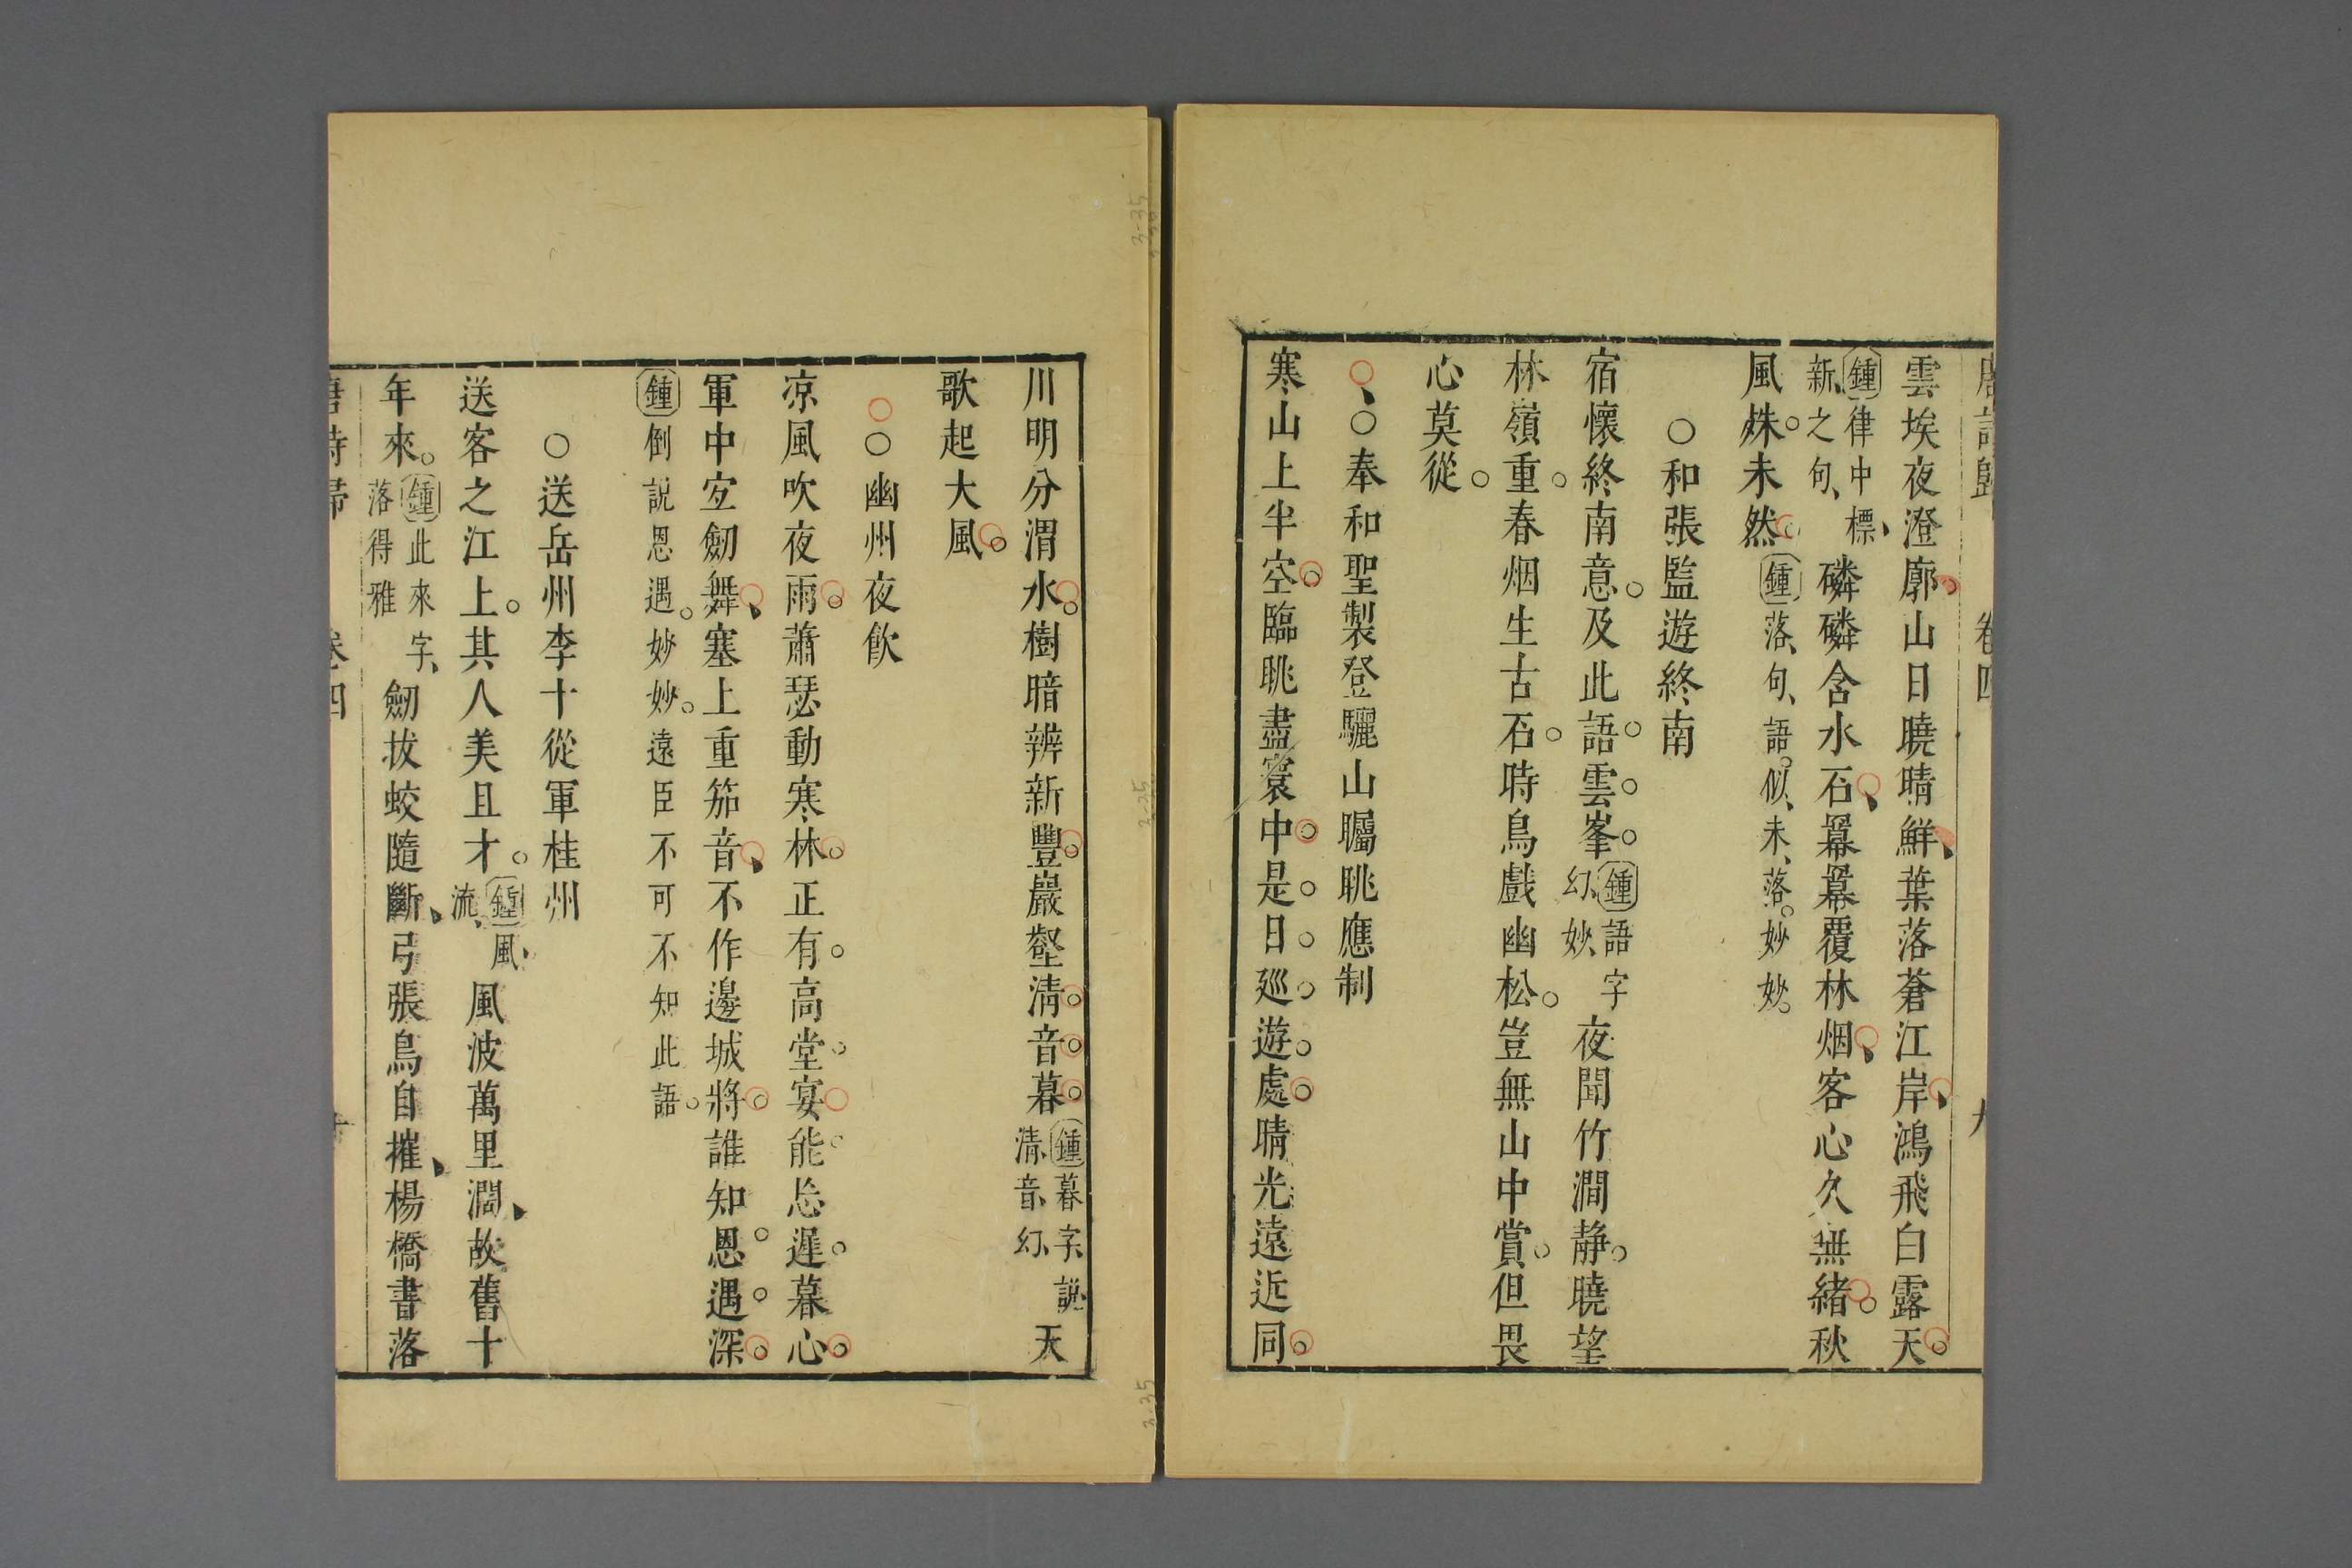 唐詩歸 卷四 九
雲埃夜澄廓山日曉晴鮮葉落蒼江岸鴻飛白露天
鍾律中標
新之句
磷磷含水石羃羃覆林烟客心久無緒秋
風殊未然鍾落句語似未落妙妙
○和張監遊終南
宿懷終南意及此語雲峯鍾語字
幻妙
夜聞竹澗静曉望
林嶺重春烟生古石時鳥戲幽松豈無山中賞但畏
心莫從
○奉和聖製登驪山矚眺應制
寒山上半空臨眺盡寰中是日廵遊處晴光遠近同
川明分渭水樹暗辨新豐巖壑清音暮鍾暮字說
清音幻
天
歌起大風
○幽州夜飲
凉風吹夜雨蕭瑟動寒林正有高堂宴能忘遲暮心
軍中宐劒舞塞上重笳音不作邊城將誰知恩遇深
鍾倒説恩遇妙妙遠臣不可不知此語
○送岳州李十從軍桂州
送客之江上其人美且才鍾風
流
風波萬里濶故舊十
年來鍾此來字
落得雅
劒拔蛟隨斷弓張鳥自摧楊橋書落
唐詩歸 卷四 十
3-35
3-35
3-35